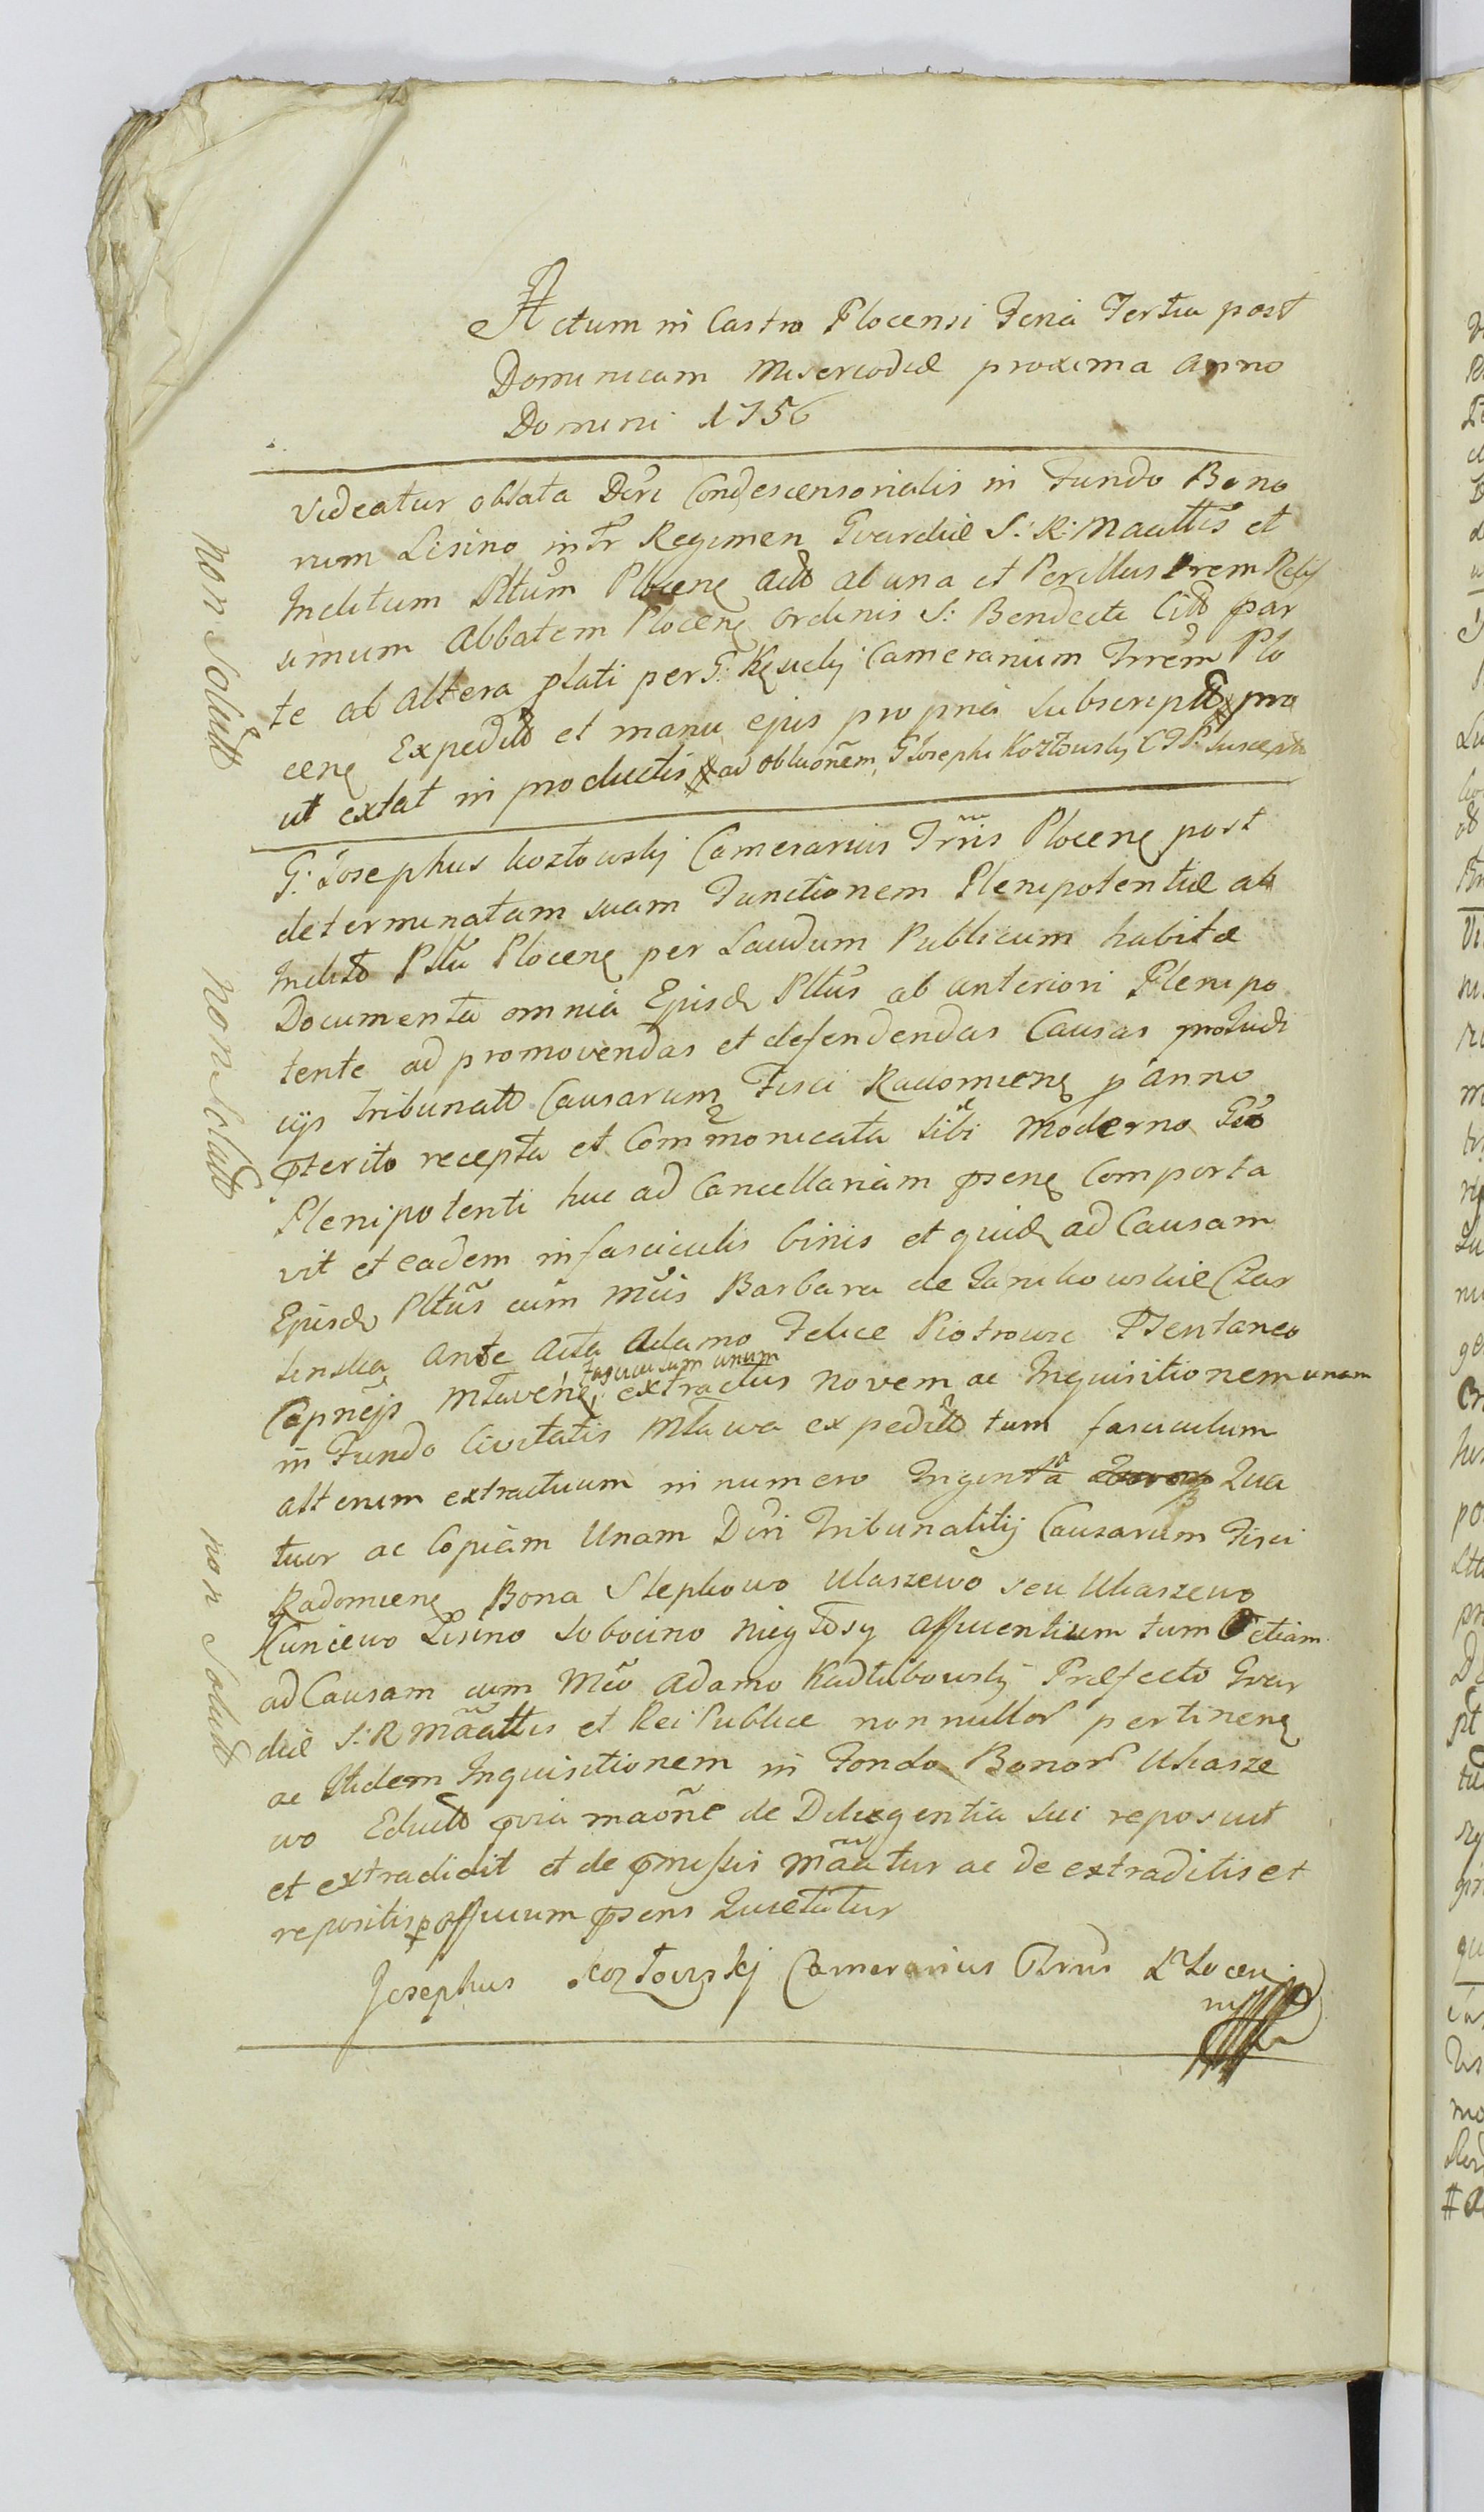 Actum in Castro Plocensi Feria Tertia post
Dominicam Misericodiæ proxima Anno
Domini 1756
videatur oblata Dcri Condescensorialis in Fundo Bono
rum Lisino intr Regimen Gvardiæ S: R: Maattis et
Inclitum Plttum Plocen ab una et Perillustrem
simum Abbatem Plocen Ordinis S: Bendicti par
te ab altera plati per G: Camerarium Trrem Plo
cen Expedit et manu ejus propria subscript pro
ut extat in productis ad oblaonem G Josephi Kozłowskij C T P: suscept
non Solutt
G: Josephus kozłowskij Camerarius Trris Plocen post
determinatam suam Functionem Plenipotentiæ ab
Inclito Plttu Plocen per Laudum Publicum habitæ
Documenta omnia Ejusd Plttus ab anteriori Plenipo
tente ad promovendas et defendendas Causas pro Judi
cijs Tribunatt Causarum Fisci Radomien p anno
pterito recepta et Commonicata sibi moderno Gso
Plenipotenti huc ad Cancellariam psen Comporta
vit et eadem in fasciculis binis et quid ad Causam
Ejusd Plttus cum Mcis Barbara de Jankowskie
ante acta Adamo Felice Piotrowic
fasciculum unum
Capnejs Młaven extractus novem ac Inquisitionem unam
in Fundo Civitatis Mława expedit tum fasciculum
alterum extractuum in numero Trigenta Qua
tuor ac Copiam Unam Dcri Tribunalitij Causarum Fisci
Radomien Bona Slepkowo Ulaszewo seu Uhaszewo
Kuncewo Lisino Sobocino Niegłosy afficientium tum etiam
ad Causam cum Mco Adamo Kadłubowskij Præfecto Gvar
diæ S: R Maattis et Rei Publice non nullor pertinen
ac Itidem Inquisitionem in Fondo Bonor Uhasze
wo Educt qvia maone de Diligentia sui reposuit
et extradidit et de pmissis maatur ac de extraditis et
repositis p officium psens Quietatur
non Solutt
non Solutt
Josephus Kozłowskj Camerarius Trris Plocen